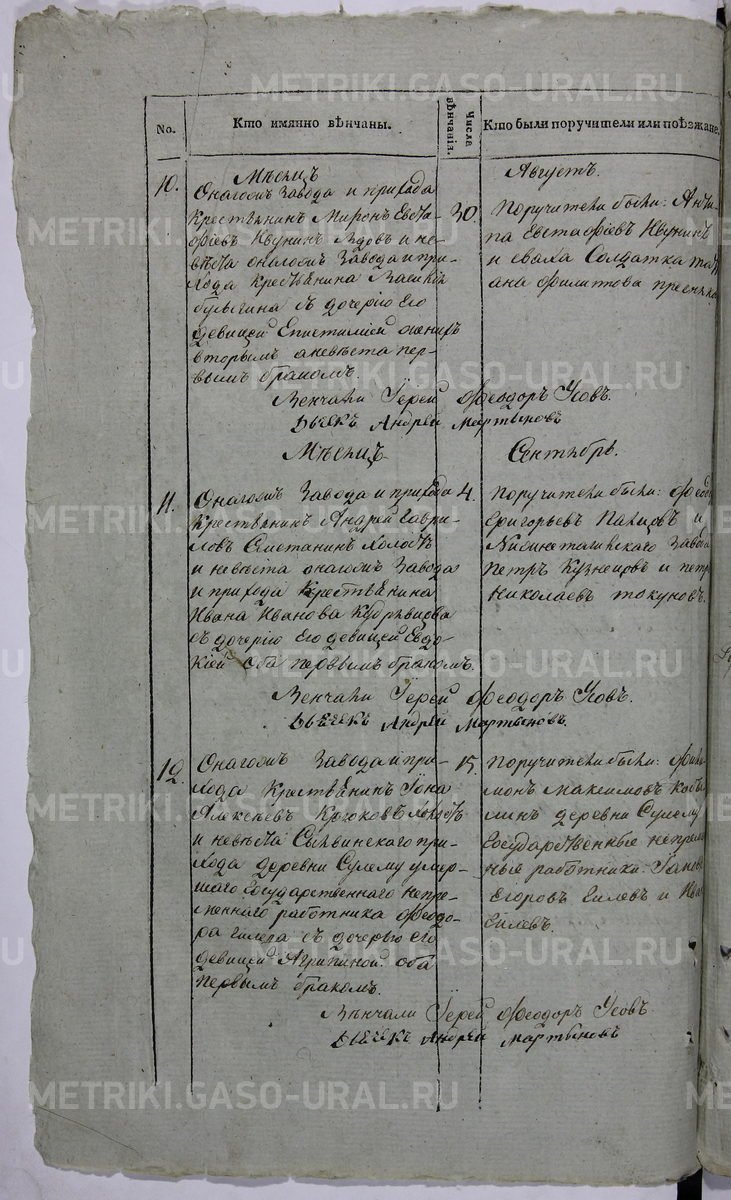 No.
Кто имянно вѣнчаны.
Числа вѣнчанія.
Кто были поручители или поѣзжане.
Мѣсяцъ
Августъ.
10.
Онагожъ Завода и прихода
Крестьянинъ Миронъ Евста-
фіевъ Ивунинъ вдовъ и не-
вѣста онагожъ Завода и при-
хода Крестьянина Василія
булыгина съ дочерію Его
девицей Епистиміей женихъ
вторымъ а невѣста пер-
вымъ бракомъ.
30.
Поручители были: Анти-
па Евстафіевъ Ивунинъ
и сваха Солдатка
Филитова
Венчали Іерей Феодоръ Усовъ.
Дьячекъ Андрей Мартыновъ
Мѣсяцъ
Сентябрь.
11.
Онагожъ Завода и прихода
Крестьянинъ Андрей Гаври-
ловъ Сметанинъ Холостъ
и невѣста онагожъ Завода
и прихода Крестьянина
Ивана Иванова Кудрявцова
съ дочерію Его девицей Евдо-
кіей оба первымъ бракомъ.
4.
Поручители были:
Григорьевъ Пальцовъ и
Нижнетагильскаго Завода
Петръ Кузнецовъ и петръ
Николаевъ токуновъ.
Венчали Іерей Феодоръ Усовъ.
Дьячекъ Андрей Мартыновъ.
12.
Онагожъ Завода и при-
хода Крестьянинъ Іона
Алексѣевъ Крюковъ Холостъ
и невѣста Сылвинскаго при-
хода деревни Сулему умер-
шаго Государственнаго непре-
меннаго работника Феодо-
ра гилева съ дочерью его
девицей Агрипиной оба
первымъ бракомъ.
15.
Поручители были:
максимовъ
деревни Сулему
Государственные
работники
Егоровъ Гилевъ и
Гилевъ.
Вѣнчали Іерей Феодоръ Усовъ
Дьячекъ Андрей Мартыновъ
METRIKI.GASO-URAL.RU